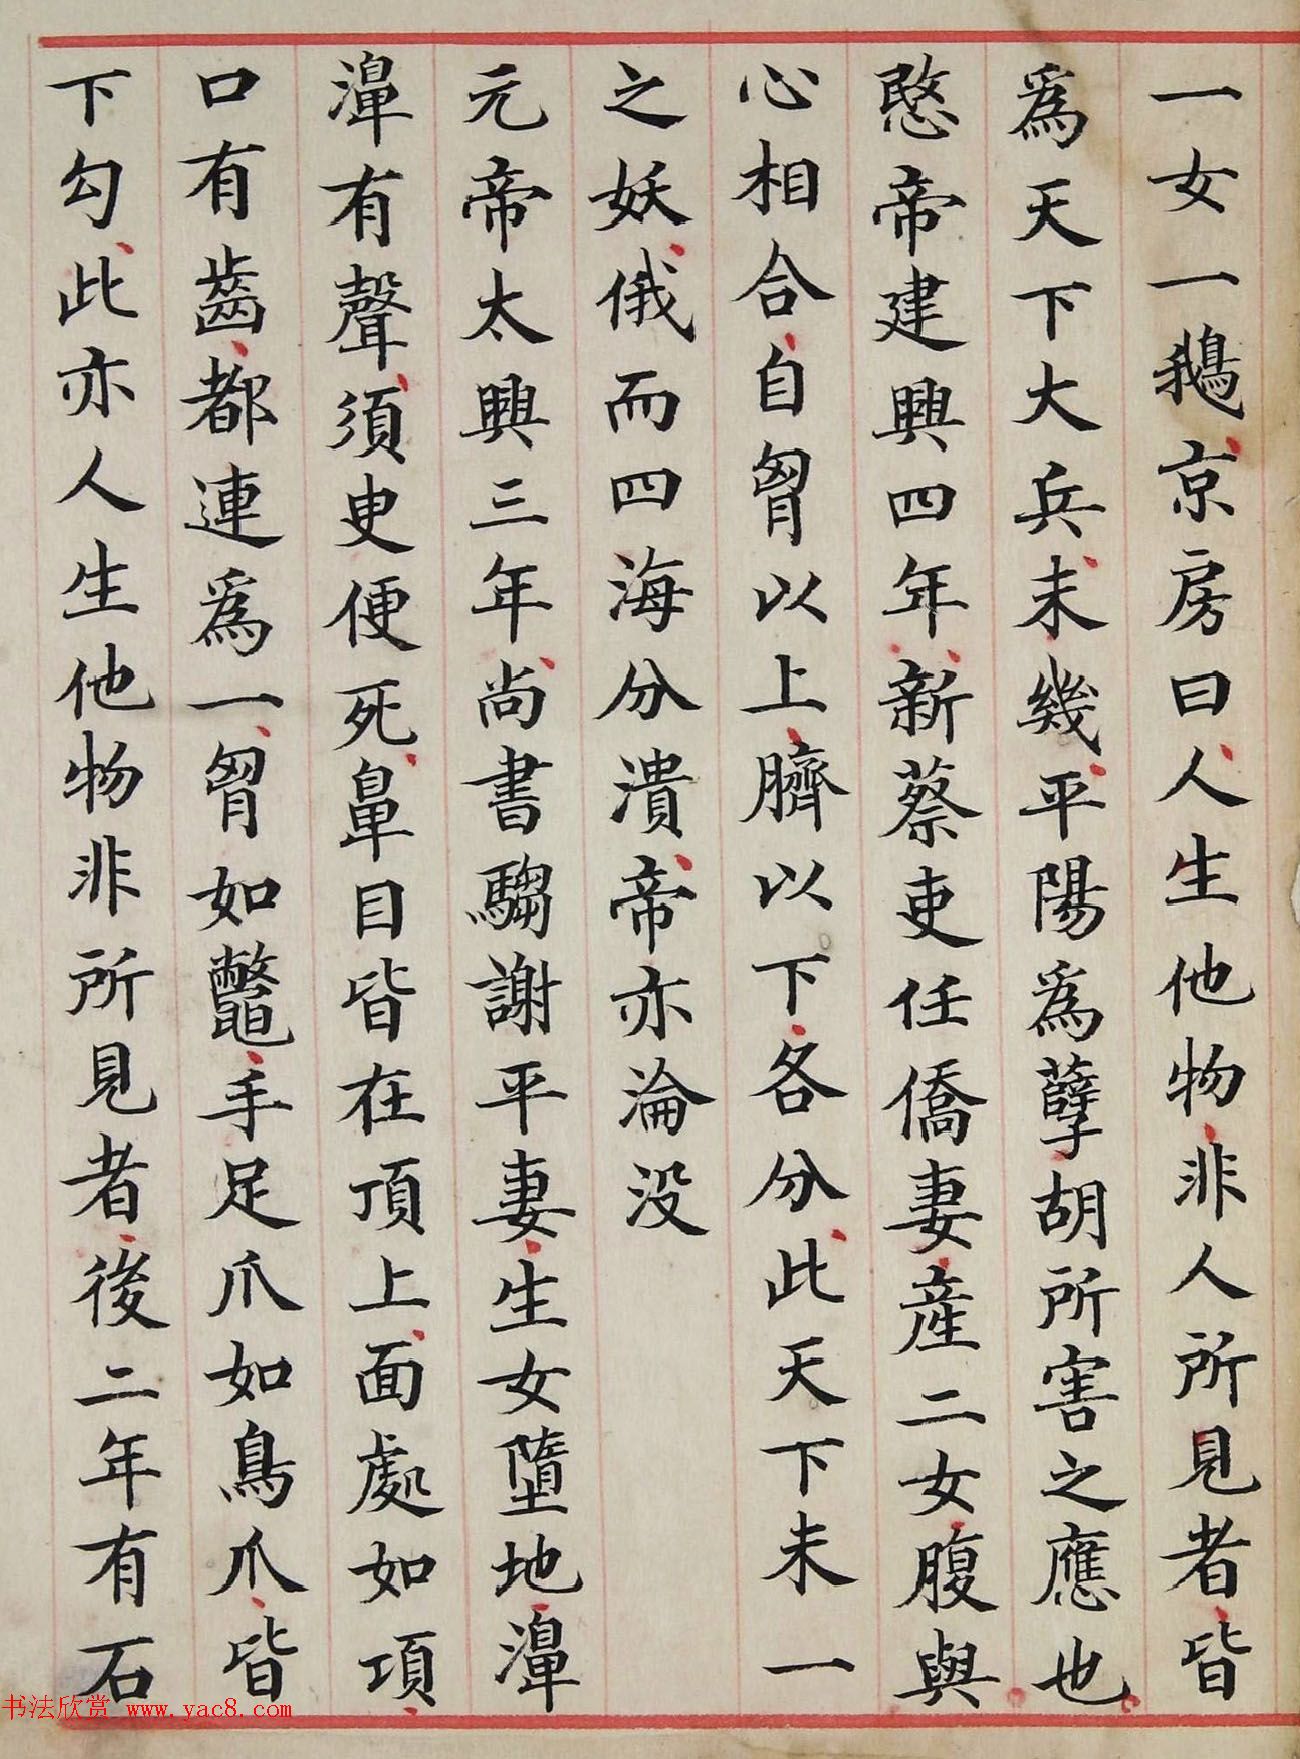 一女一鵝京房曰人生他物非人所見者皆
為天下大兵未幾平陽為孽胡所害之應也
愍帝建興四年新蔡吏任僑妻産二女腹與
心相合自胷以上臍以下各分此天下未一
之妖俄而四海分潰帝亦淪没
元帝太興三年尚書騶謝平妻生女墮地濞
濞有聲須吏便死鼻目皆在頂上面處如項
口有齒都連為一胷如鼈手足爪如鳥爪皆
下勾此亦人生他物非所見者後二年有石
书法欣赏 www.yac8.com